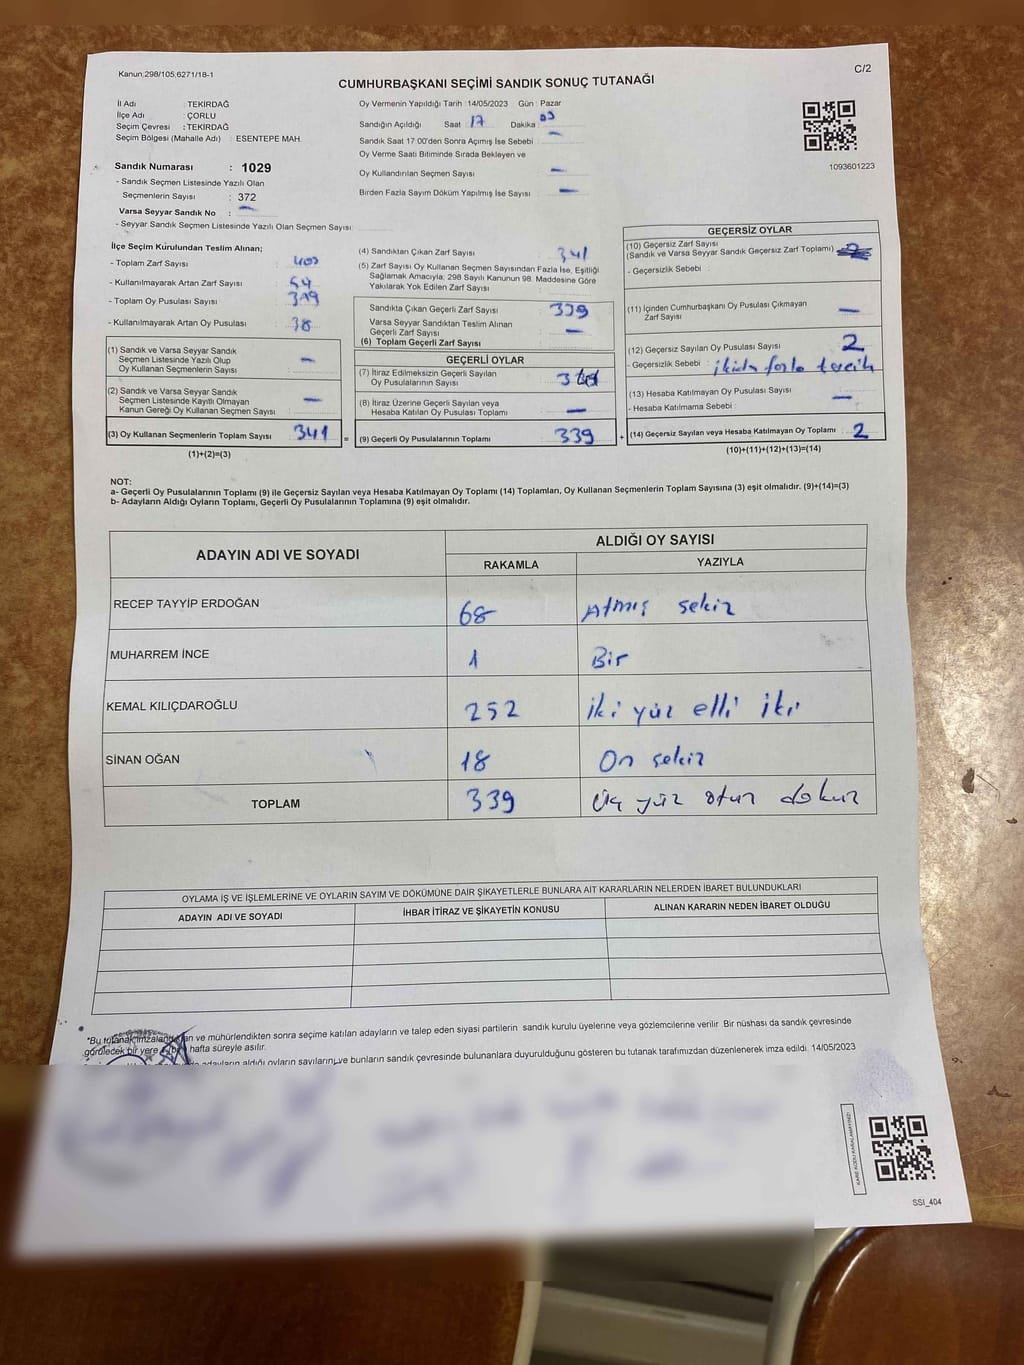 Kanun:298/105,6271/18-1
C/2
CUMHURBAŞKANI SEÇİMİ SANDIK SONUÇ TUTANAĞI
İl Adı : TEKİRDAĞ
İlçe Adı : ÇORLU
Seçim Çevresi : TEKİRDAĞ
Seçim Bölgesi (Mahalle Adı) : ESENTEPE MAH.
Sandık Numarası : 1029
- Sandık Seçmen Listesinde Yazılı Olan
Seçmenlerin Sayısı : 372
Varsa Seyyar Sandık No : —
- Seyyar Sandık Seçmen Listesinde Yazılı Olan Seçmen Sayısı:
Oy Vermenin Yapıldığı Tarih :14/05/2023 Gün : Pazar
Sandığın Açıldığı Saat : 17 Dakika :
Sandık Saat 17:00'den Sonra Açımış İse Sebebi : —
Oy Verme Saati Bitiminde Sırada Bekleyen ve
Oy Kullandırılan Seçmen Sayısı : —
Birden Fazla Sayım Döküm Yapılmış İse Sayısı : —
1093601223
İlçe Seçim Kurulundan Teslim Alınan;
- Toplam Zarf Sayısı :
- Kullanılmayarak Artan Zarf Sayısı : 54
- Toplam Oy Pusulası Sayısı :
- Kullanılmayarak Artan Oy Pusulası : 38
(1) Sandık ve Varsa Seyyar Sandık
Seçmen Listesinde Yazılı Olup
Oy Kullanan Seçmenlerin Sayısı : —
(2) Sandık ve Varsa Seyyar Sandık
Seçmen Listesinde Kayıtlı Olmayan
Kanun Gereği Oy Kullanan Seçmen Sayısı : —
(3) Oy Kullanan Seçmenlerin Toplam Sayısı : 341 =
(1)+(2)=(3)
(4) Sandıktan Çıkan Zarf Sayısı : 341
(5) Zarf Sayısı Oy Kullanan Seçmen Sayısından Fazla İse, Eşitliği
Sağlamak Amacıyla, 298 Sayılı Kanunun 98. Maddesine Göre
Yakılarak Yok Edilen Zarf Sayısı :
Sandıkta Çıkan Geçerli Zarf Sayısı : 339
Varsa Seyyar Sandıktan Teslim Alınan
Geçerli Zarf Sayısı : —
(6) Toplam Geçerli Zarf Sayısı :
GEÇERLİ OYLAR
(7) İtiraz Edilmeksizin Geçerli Sayılan
Oy Pusulalarının Sayısı :
(8) İtiraz Üzerine Geçerli Sayılan veya
Hesaba Katılan Oy Pusulası Toplamı : —
(9) Geçerli Oy Pusulalarının Toplamı : 339 +
GEÇERSİZ OYLAR
(10) Geçersiz Zarf Sayısı
(Sandık ve Varsa Seyyar Sandık Geçersiz Zarf Toplamı) :
- Geçersizlik Sebebi :
(11) İçinden Cumhurbaşkanı Oy Pusulası Çıkmayan
Zarf Sayısı : —
(12) Geçersiz Sayılan Oy Pusulası Sayısı : 2
- Geçersizlik Sebebi : fazla tercih
(13) Hesaba Katılmayan Oy Pusulası Sayısı : —
- Hesaba Katılmama Sebebi :
(14) Geçersiz Sayılan veya Hesaba Katılmayan Oy Toplamı : 2
(10)+(11)+(12)+(13)=(14)
NOT:
a- Geçerli Oy Pusulalarının Toplamı (9) ile Geçersiz Sayılan veya Hesaba Katılmayan Oy Toplamı (14) Toplamları, Oy Kullanan Seçmenlerin Toplam Sayısına (3) eşit olmalıdır. (9)+(14)=(3)
b- Adayların Aldığı Oyların Toplamı, Geçerli Oy Pusulalarının Toplamına (9) eşit olmalıdır.
ADAYIN ADI VE SOYADI ALDIĞI OY SAYISI
RAKAMLA YAZIYLA
RECEP TAYYİP ERDOĞAN 68 Atmış sekiz
MUHARREM İNCE 1 Bir
KEMAL KILIÇDAROĞLU 252 iki yüz elli iki
SİNAN OĞAN 18 On sekiz
TOPLAM 339 Üç yüz otuz dokuz
OYLAMA İŞ VE İŞLEMLERİNE VE OYLARIN SAYIM VE DÖKÜMÜNE DAİR ŞİKAYETLERLE BUNLARA AİT KARARLARIN NELERDEN İBARET BULUNDUKLARI
ADAYIN ADI VE SOYADI İHBAR İTİRAZ VE ŞİKAYETİN KONUSU ALINAN KARARIN NEDEN İBARET OLDUĞU
*Bu tutanak ve mühürlendikten sonra seçime katılan adayların ve talep eden siyasi partilerin sandık kurulu üyelerine veya gözlemcilerine verilir. Bir nüshası da sandık çevresinde
görülecek bir yere hafta süreyle asılır.
adayların aldığı oyların sayılarını ve bunların sandık çevresinde bulunanlara duyurulduğunu gösteren bu tutanak tarafımızdan düzenlenerek imza edildi. 14/05/2023
KARE KODU KARALAMAYINIZ!
SSI_404